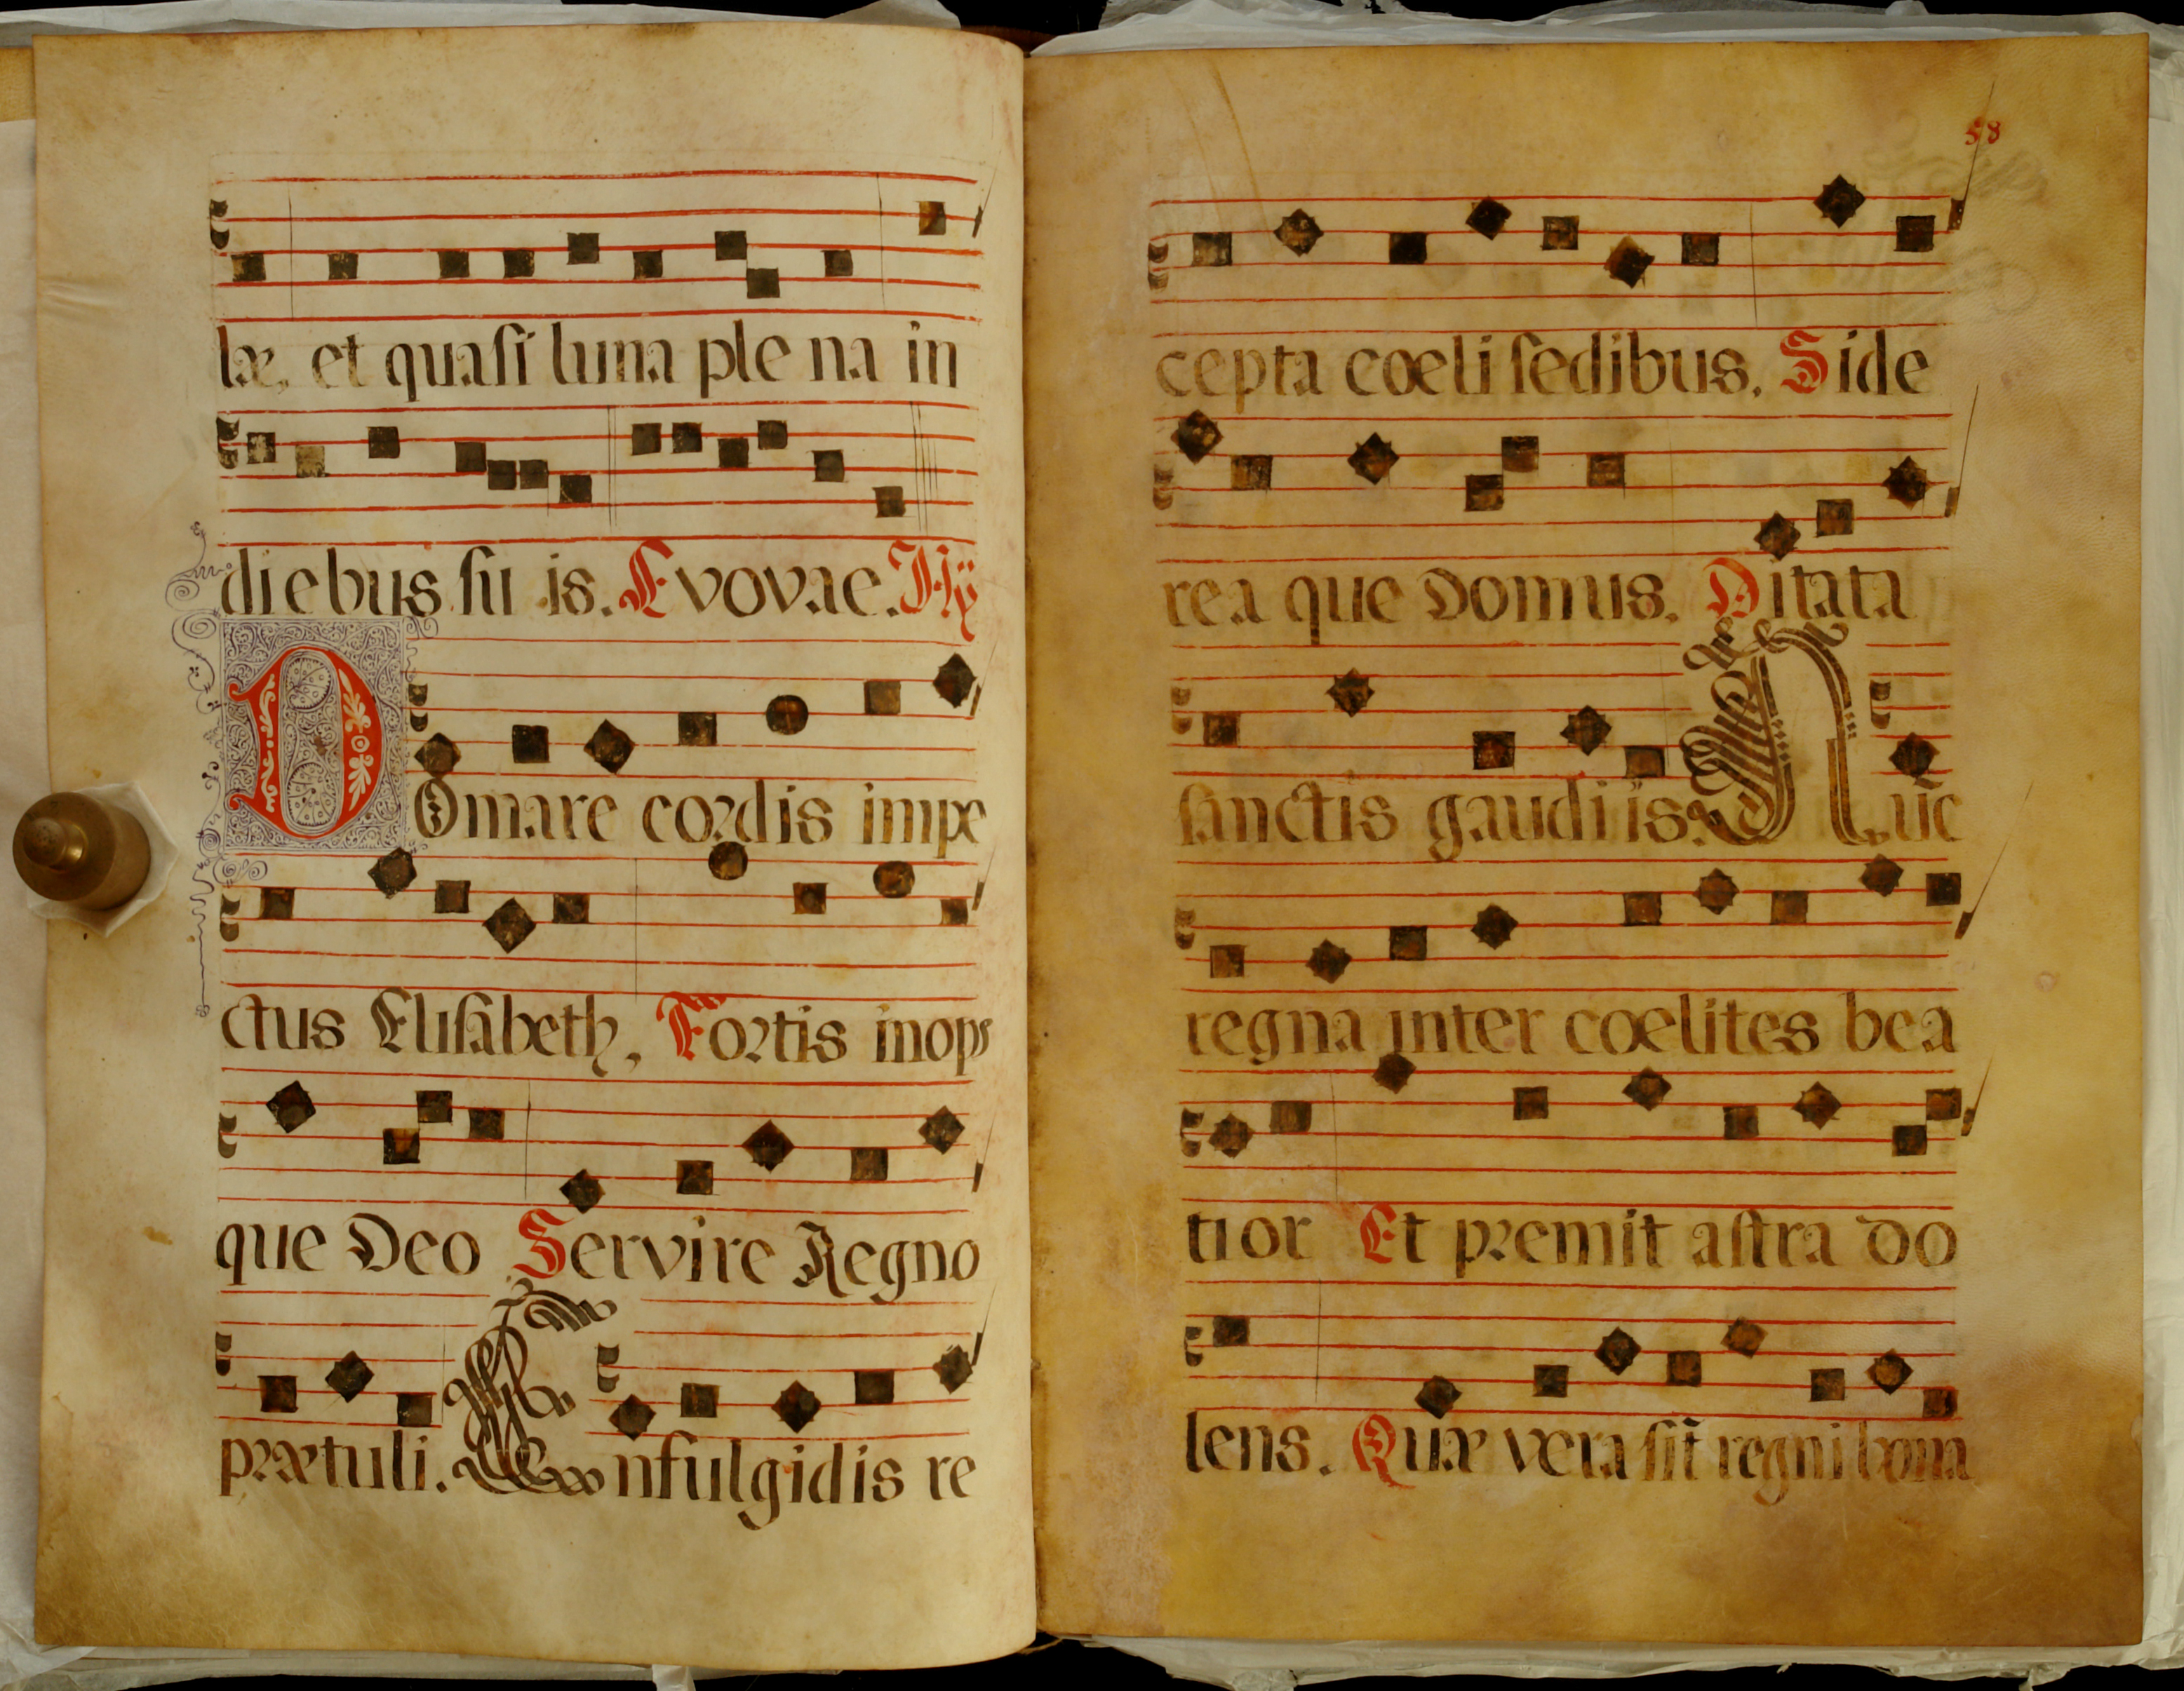 læ, et quasi luna ple na in
diebus su is. Evovae. Hÿ
DOmare cordis impe
ctus Elisabeth, Fortis inops
que Deo Servire Regno
prætuli. En fulgidis re
58
cepta cœli sedibus. Side
rea que Domus. Ditata
sanctis gaudiis. Nūc
regna inter cœlites bea
tior Et premit astra do
lens. Quæ vera sīt regni bona